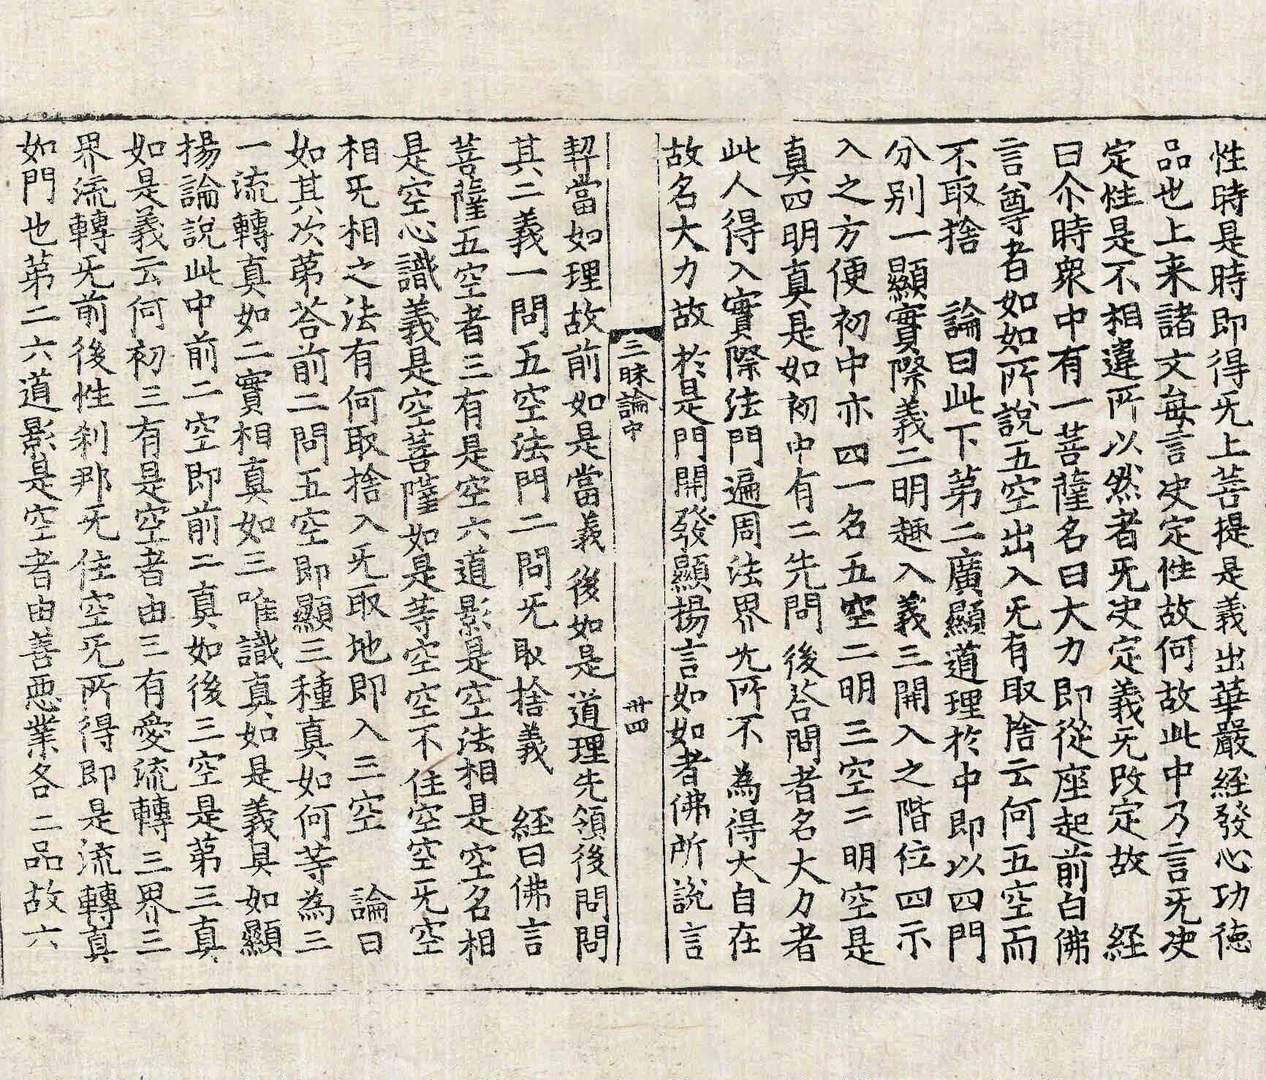 性時是時即得旡上菩提是義出華嚴經發心功德
品也上来諸文每言决定性故何故此中乃言旡决
定性是不相違所以然者旡决定義旡改定故　經
曰尒時衆中有一菩薩名曰大力即從座起前白佛
言尊者如如所說五空出入旡有取捨云何五空而
不取捨　論曰此下苐二廣顯道理於中即以四門
分别一顯實際義二明趣入義三開入之階位四示
入之方便初中亦四一名五空二明三空三明空是
真四明真是如初中有二先問後荅問者名大力者
此人得入實際法門遍周法界旡所不為得大自在
故名大力故於是門開發顯揚言如如者佛所說言
三昧論中　卅四
契當如理故前如是當義後如是道理先領後問問
其二義一問五空法門二問旡取捨義　經曰佛言
菩薩五空者三有是空六道影是空法相是空名相
是空心識義是空菩薩如是等空空不住空空旡空
相旡相之法有何取捨入旡取地即入三空　論曰
如其次苐荅前二問五空即顯三種真如何等為三
一流轉真如二實相真如三唯識真如是義具如顯
揚論說此中前二空即前二真如後三空是苐三真
如是義云何初三有是空者由三有愛流轉三界三
界流轉旡前後性刹那旡住空旡所得即是流轉真
如門也苐二六道影是空者由善惡業各二品故六